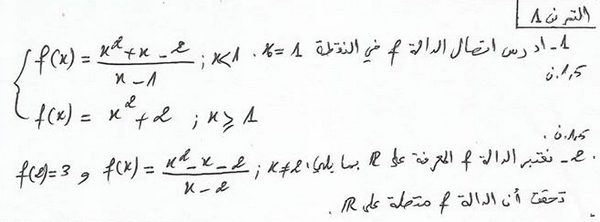 التمرين 1
1- ادرس اتصال الدالة f في النقطة x=1.
1,5ن
f(x) = (x²+x-2)/(x-1) ; x<1
f(x) = x²+2 ; x≥1
1,5ن.
2- نعتبر الدالة f المعرفة على ℝ بما يلي: f(x) = (x²-x-2)/(x-2) ; x≠2 و f(2)=3
تحقق أن الدالة f متصلة على ℝ.